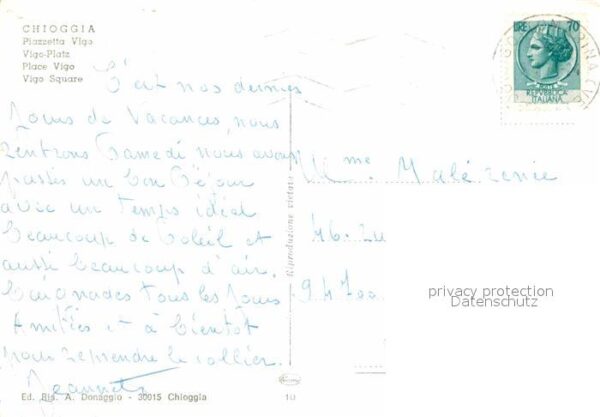 CHIOGGIA
Piazzetta Vigo
Vigo-Platz
Place Vigo
Vigo Square
LIRE 70
REPUBBLICA
ITALIANA
C'est nos derniers
Jours de Vacances, nous
rentrons Samedi nous avons
passés un bon Séjour
avec un Temps idéal
beaucoup de Soleil et
aussi beaucoup d'air.
baignades tous les Jours
Amitiés et à bientôt
pour reprendre le collier.
Jeannette
Riproduzione vietata
Mme
46
94700
privacy protection
Datenschutz
Ed. Ris. A. Donaggio - 30015 Chioggia